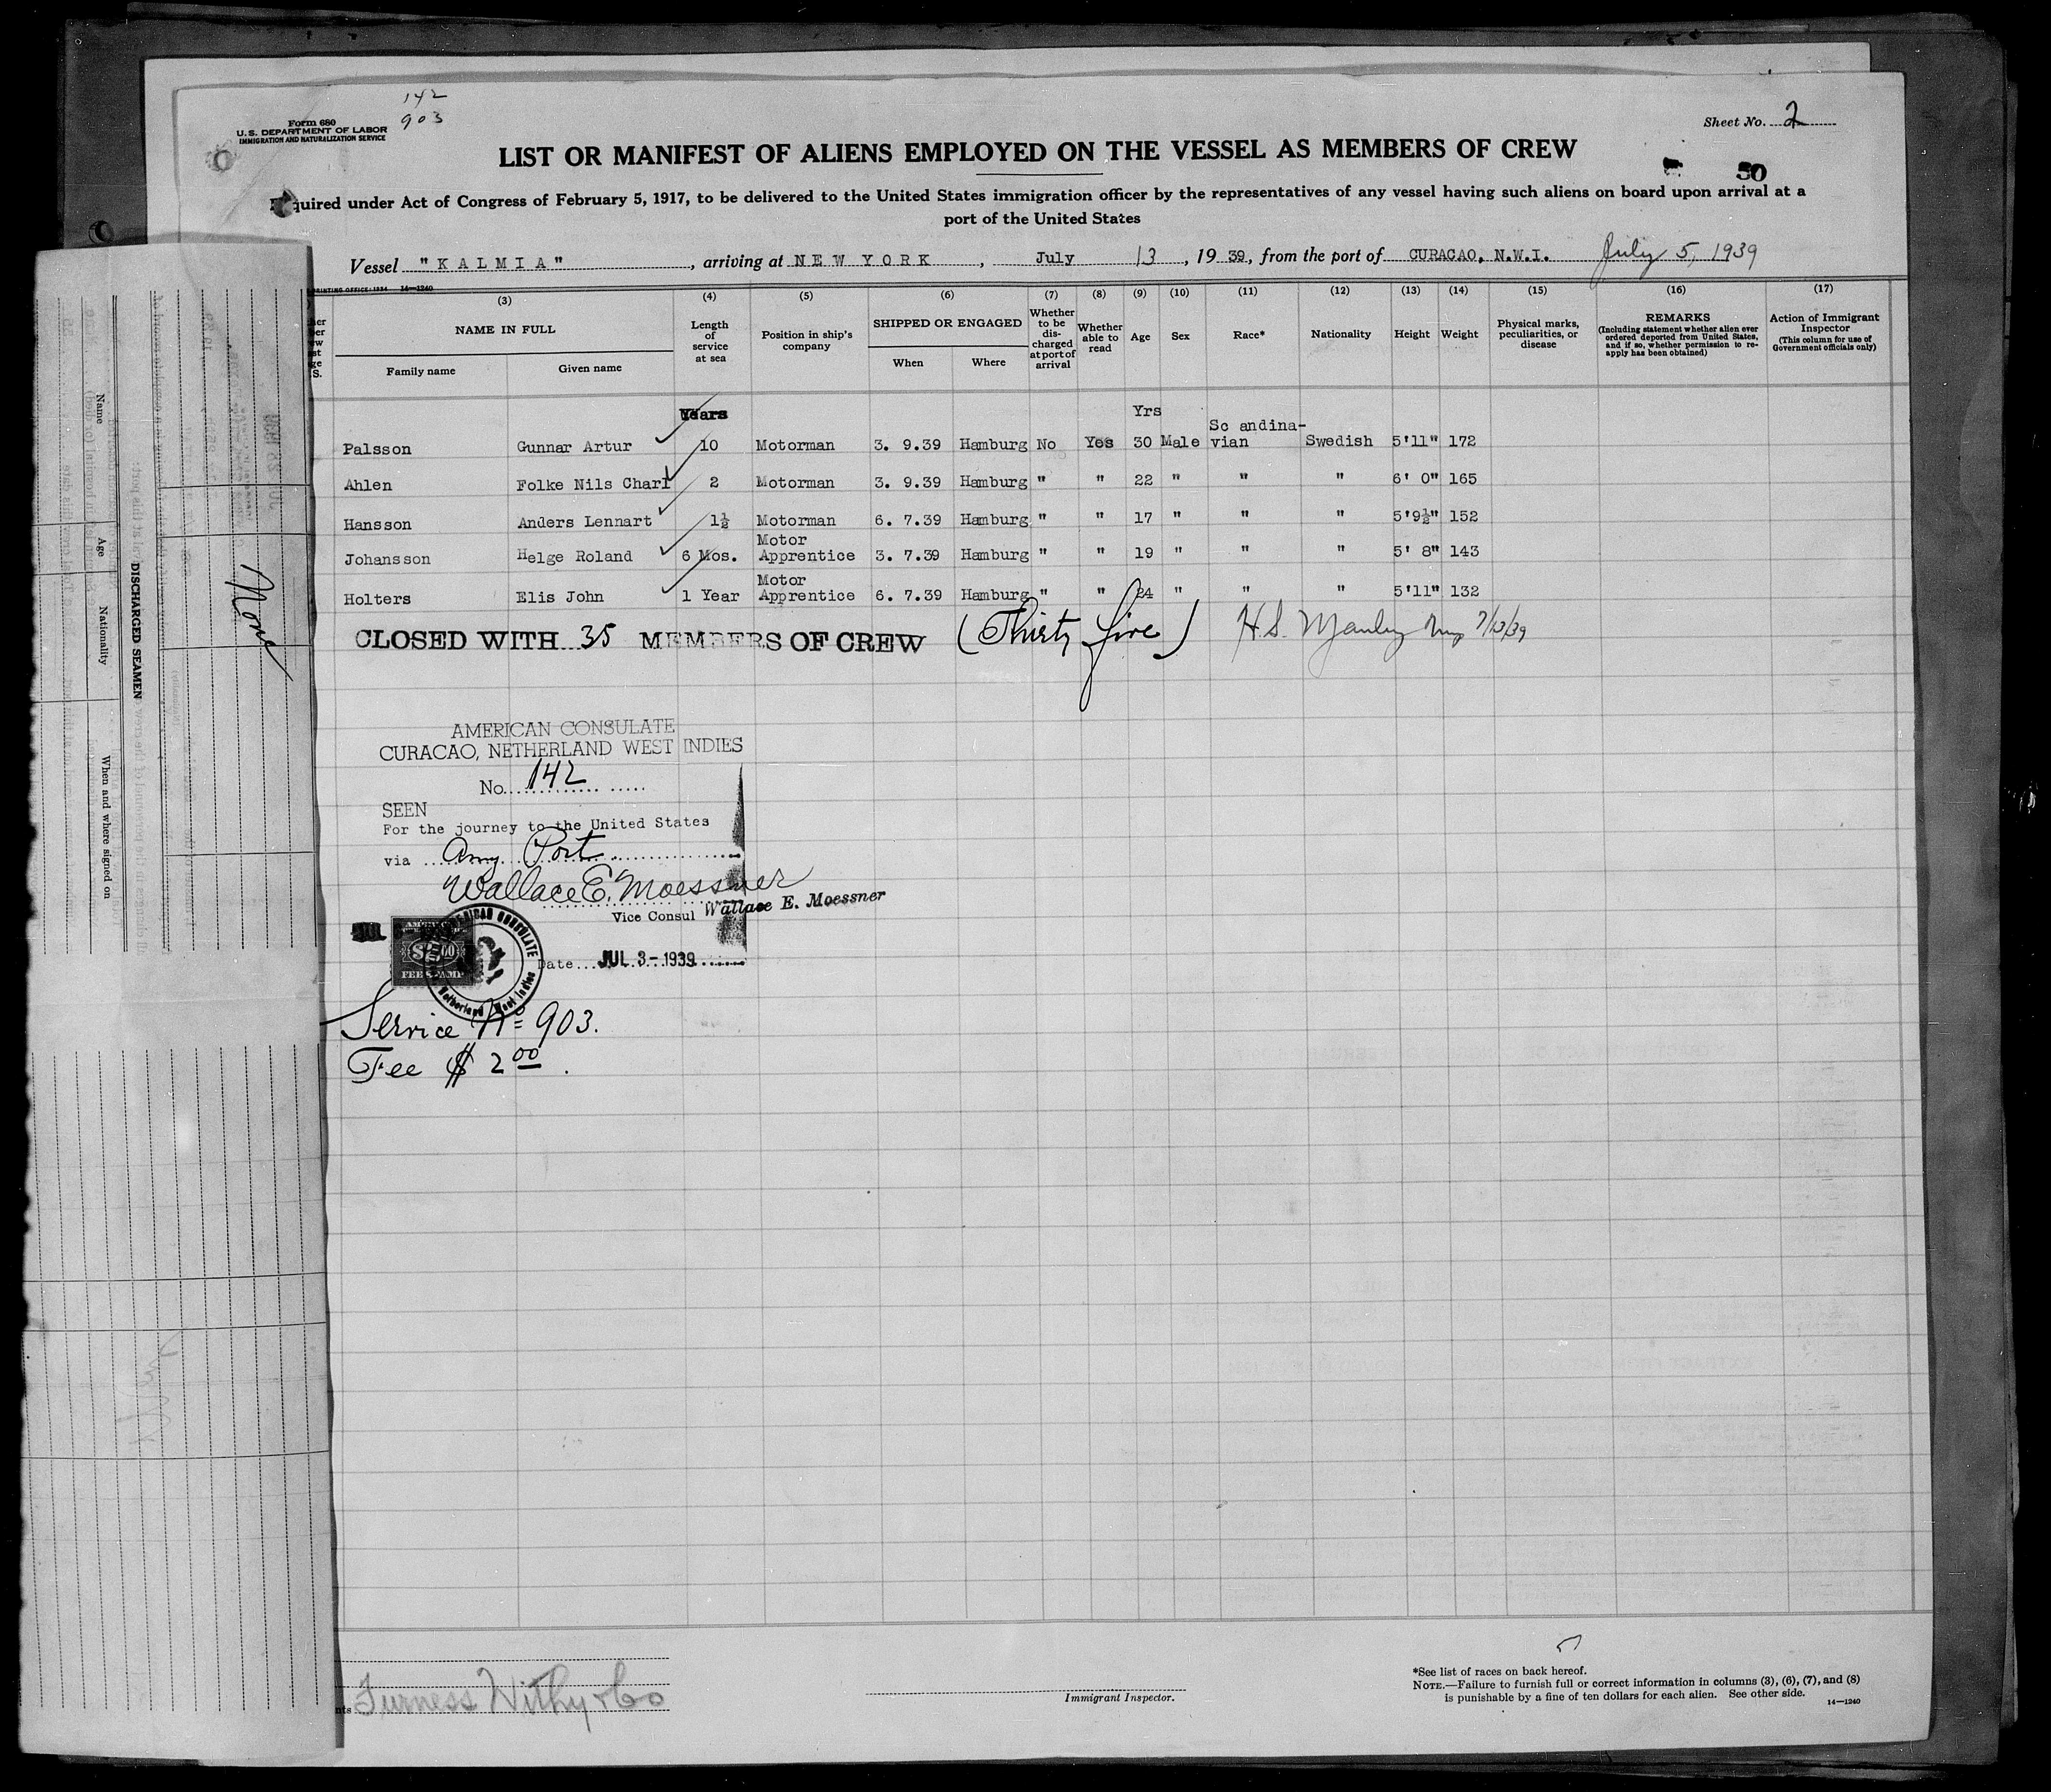 142
903
Form 680
U.S. DEPARTMENT OF LABOR
IMMIGRATION AND NATURALIZATION SERVICE
Sheet No. 2
LIST OR MANIFEST OF ALIENS EMPLOYED ON THE VESSEL AS MEMBERS OF CREW
50
quired under Act of Congress of February 5, 1917, to be delivered to the United States immigration officer by the representatives of any vessel having such aliens on board upon arrival at a
port of the United States
Vessel "KALMIA", arriving at NEW YORK, July 13, 1939, from the port of CURACAO, N.W.I. July 5, 1939
PRINTING OFFICE: 1934 14—1240
(3) (4) (5) (6) (7) (8) (9) (10) (11) (12) (13) (14) (15) (16) (17)
NAME IN FULL
Family name
Given name
Length of service at sea
Position in ship's company
SHIPPED OR ENGAGED
When
Where
Whether to be discharged at port of arrival
Whether able to read
Age
Sex
Race*
Nationality
Height
Weight
Physical marks, peculiarities, or disease
REMARKS
(Including statement whether alien ever ordered deported from United States, and if so, whether permission to re-apply has been obtained)
Action of Immigrant Inspector
(This column for use of Government officials only)
Years Yrs
Palsson Gunnar Artur 10 Motorman 3. 9.39 Hamburg No Yes 30 Male Sc andina-vian Swedish 5'11" 172
Ahlen Folke Nils Charl 2 Motorman 3. 9.39 Hamburg " " 22 " " " 6' 0" 165
Hansson Anders Lennart 1½ Motorman 6. 7.39 Hamburg " " 17 " " " 5'9½" 152
Johansson Helge Roland 6 Mos. Motor Apprentice 3. 7.39 Hamburg " " 19 " " " 5' 8" 143
Holters Elis John 1 Year Motor Apprentice 6. 7.39 Hamburg " " 24 " " " 5'11" 132
CLOSED WITH 35 MEMBERS OF CREW (Thirty five) H.S. Manley 7/13/39
AMERICAN CONSULATE
CURACAO, NETHERLAND WEST INDIES
No. 142
SEEN
For the journey to the United States
via Any Port
Wallace E. Moessner
Vice Consul Wallace E. Moessner
Date JUL 3-1939
FEE STAMP
Service No 903.
Fee $ 2 00.
Name
Age
Nationality
When and where signed on
DISCHARGED SEAMEN
None
Furness Withy & Co
Immigrant Inspector.
*See list of races on back hereof.
NOTE.—Failure to furnish full or correct information in columns (3), (6), (7), and (8)
is punishable by a fine of ten dollars for each alien. See other side.
14—1240